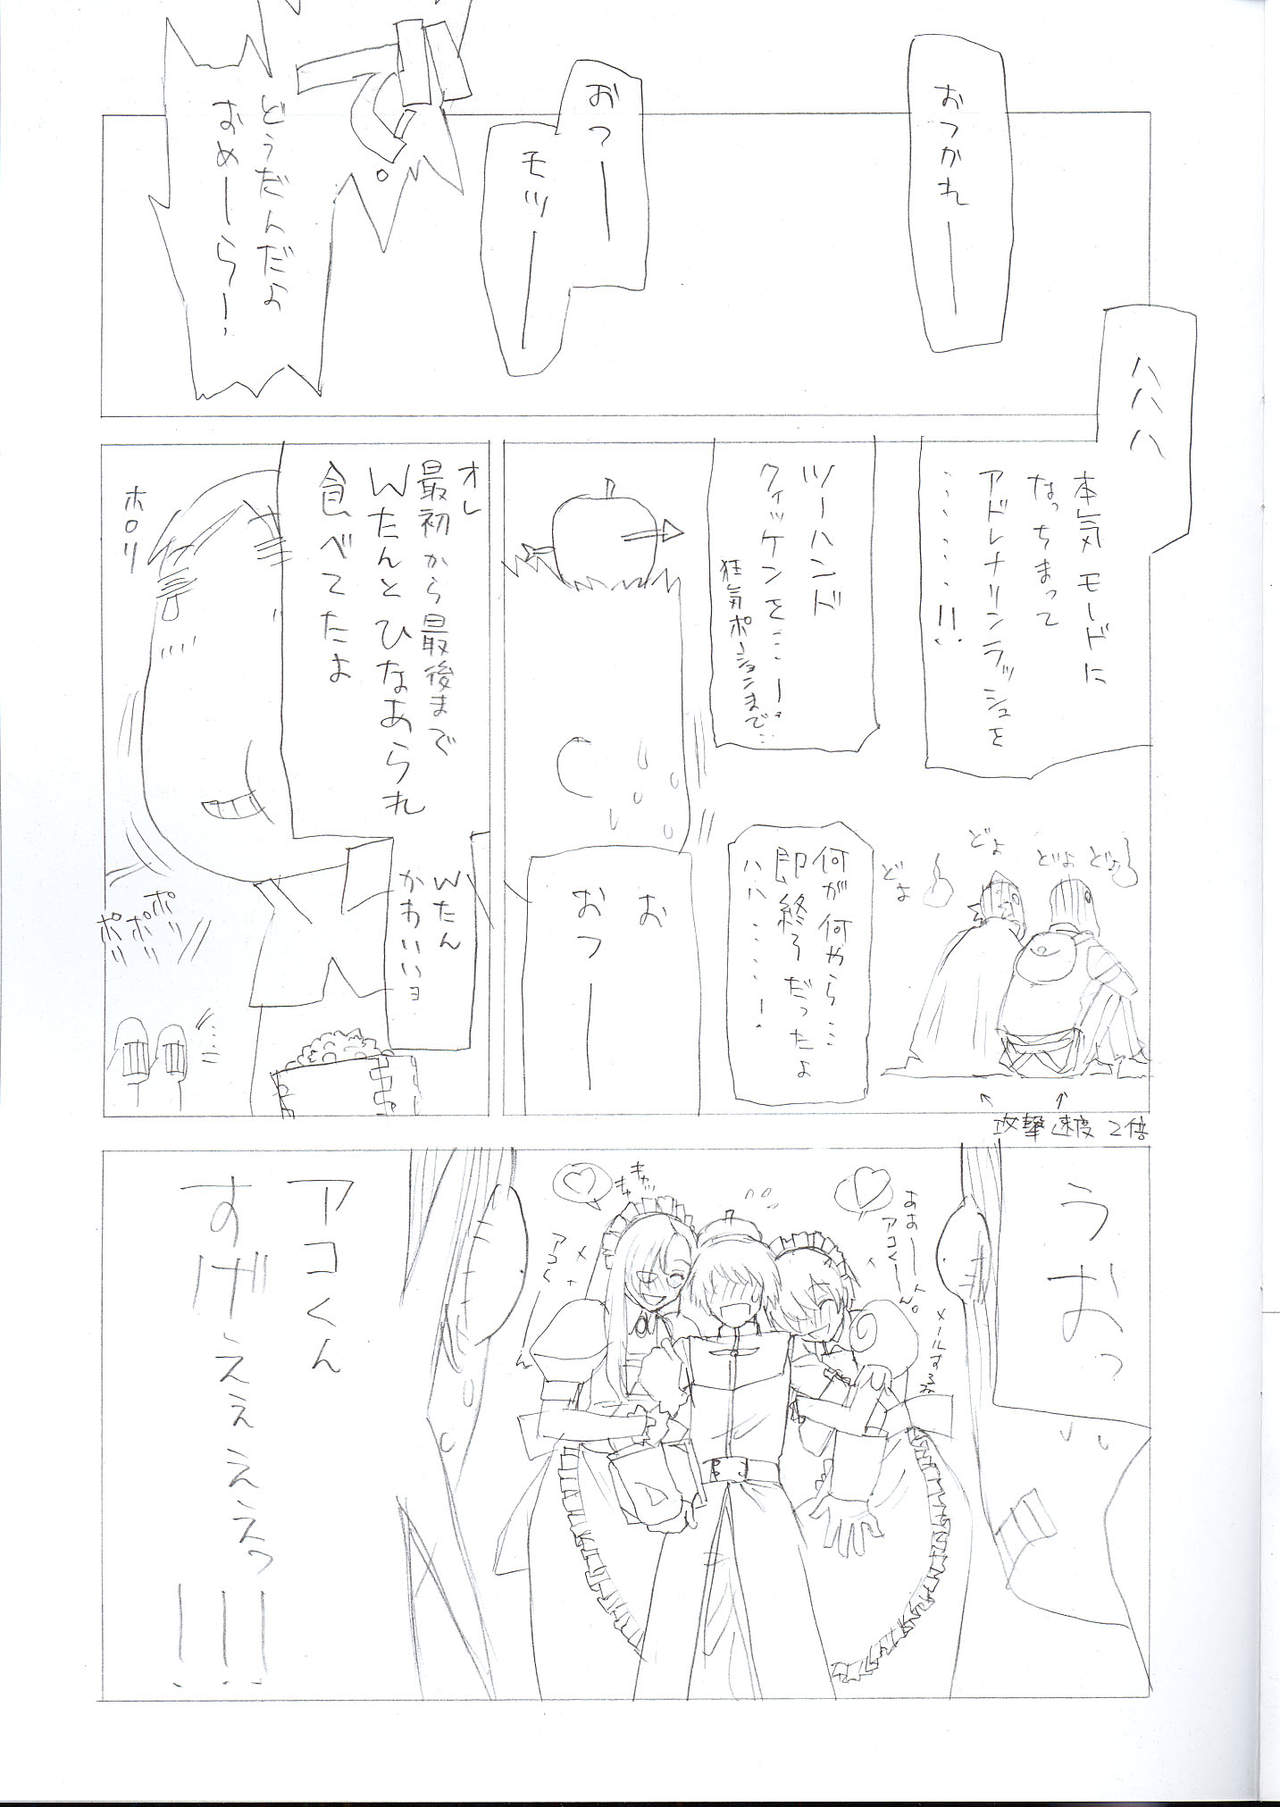 おつかれー
おつー
モツー
で。
どうだんだよ
おめーら！
ハハハ
本気モードに
なっちまって
アドレナリンラッシュを
…………!!
ツーハンド
クィッケンを……ー。
狂気ポーションまで…
どよ
どよ
どよ
どよ
何が何やら……
即終了だったよ
ハハ…………！
攻撃速度2倍
お
おつー
オレ
最初から最後まで
Wたんとひなあられ
食べてたよ
ホロリ
Wたん
かわいいヨ
ポリ
ポリ
ポリ
うおっ
あおー
アコくーん。
メールするネ
キャッ
きゃっ
アコくーん
アコくん
すげえええええっ
！！！